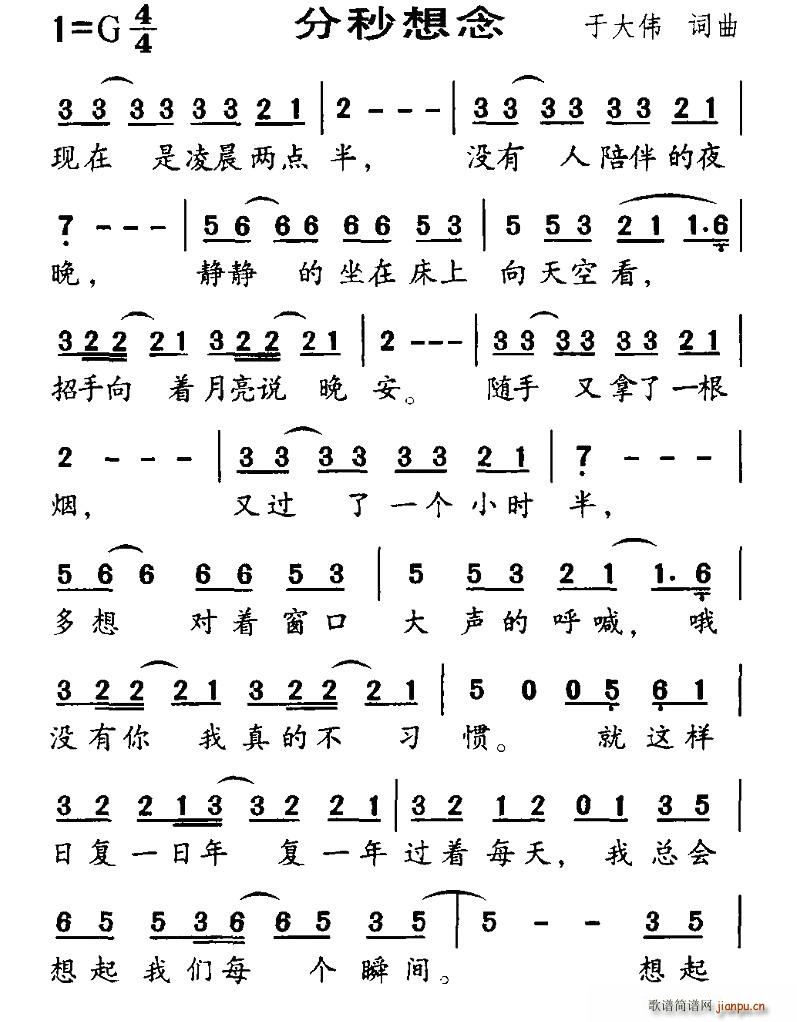 1=G 4/4 分秒想念 于大伟 词曲
3 3 3 3 3 3 2 1 | 2 - - - | 3 3 3 3 3 3 2 1 |
现在 是凌晨两点半， 没有 人陪伴的夜
7 - - - | 5 6 6 6 6 6 5 3 | 5 5 3 2 1 1·6 |
晚， 静静 的坐在床上 向天空看，
3 2 2 2 1 3 2 2 2 1 | 2 - - - | 3 3 3 3 3 3 2 1 |
招手向 着月亮说 晚 安。 随手 又拿了一根
2 - - - | 3 3 3 3 3 3 2 1 | 7 - - - |
烟， 又过 了一个小时 半，
5 6 6 6 6 5 3 | 5 5 3 2 1 1· 6 |
多想 对着窗口 大声的呼喊， 哦
3 2 2 2 1 3 2 2 2 1 | 5 0 0 5 6 1 |
没有你 我真的不 习 惯。 就这样
3 2 2 1 3 3 2 2 1 | 3 2 1 2 0 1 3 5 |
日复一日年 复一年过着每天，我总会
6 5 5 3 6 6 5 3 5 | 5 - - 3 5 |
想起我们每 个瞬间。 想起
歌谱简谱网
jianpu.cn